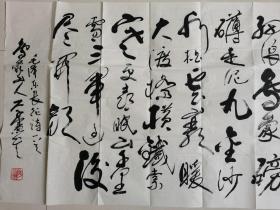 细浪乌蒙磅
礴走泥丸金沙
水拍云崖暖
大渡桥横铁索
寒更喜岷山千里
雪三军过后
尽开颜
毛泽东长征诗一首